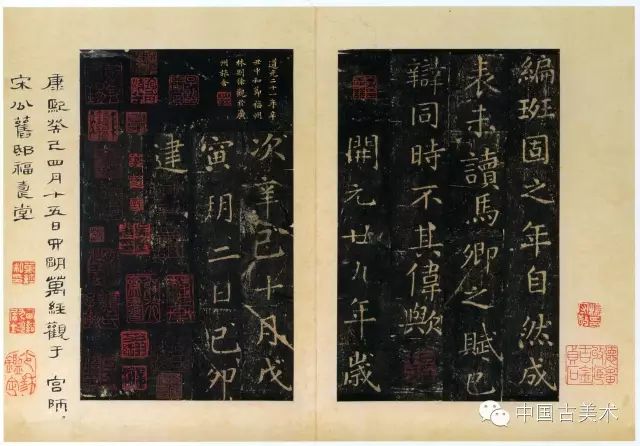 編班固之年自然成
表未讀馬卿之賦已
辯同時不其偉歟
開元廿八年歲
道光二十一年辛
丑中和節福州
林則徐觀於廣
州旅舍
次辛巳十月戊
寅朔二日己卯
建
康熙癸巳四月十五日明萬經觀于 宮師
宋公舊邸福堂
中国古美术